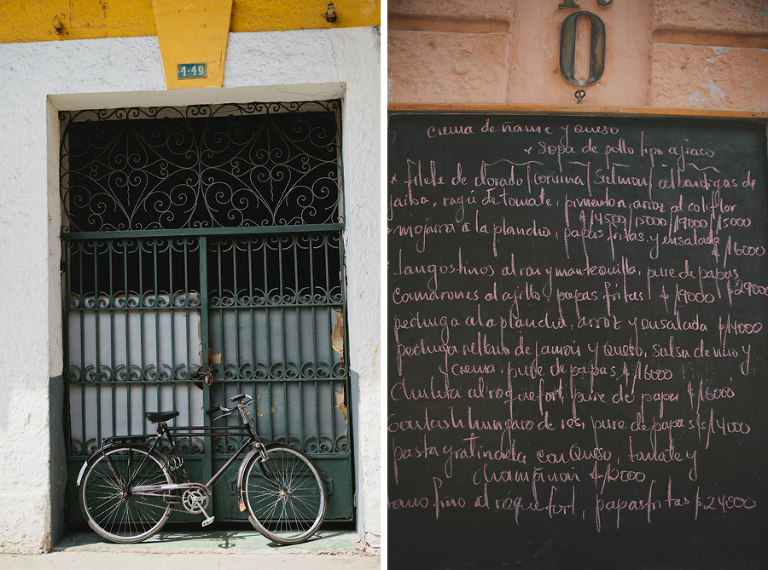 4-49
O
Crema de ñame y queso
* Sopa de pollo tipo ajiaco
* filete de dorado / corvina / Salmon / albondigas de
jaiba, ragú de tomate, pimenton, arroz al coliflor
$ / 14500 / 15000 / 19000 / 15000
mojarra a la plancha, papas fritas y ensalada
$ / 16000
langostinos al ron y mantequilla, pure de papas
$29000
Camarones al ajillo, papas fritas $ / 19000
pechuga a la plancha, arroz y ensalada $ / 14000
pechuga rellena de jamon y queso, salsa de vino y
y crema, pure de papas $ / 16000
Chuleta al roquefort, pure de papa $ / 16000
Goulash hungaro de res, pure de papas $ / 14000
pasta gratinada con queso, tomate y
champiñon $ / 12000
lomo fino al roquefort, papas fritas $24000